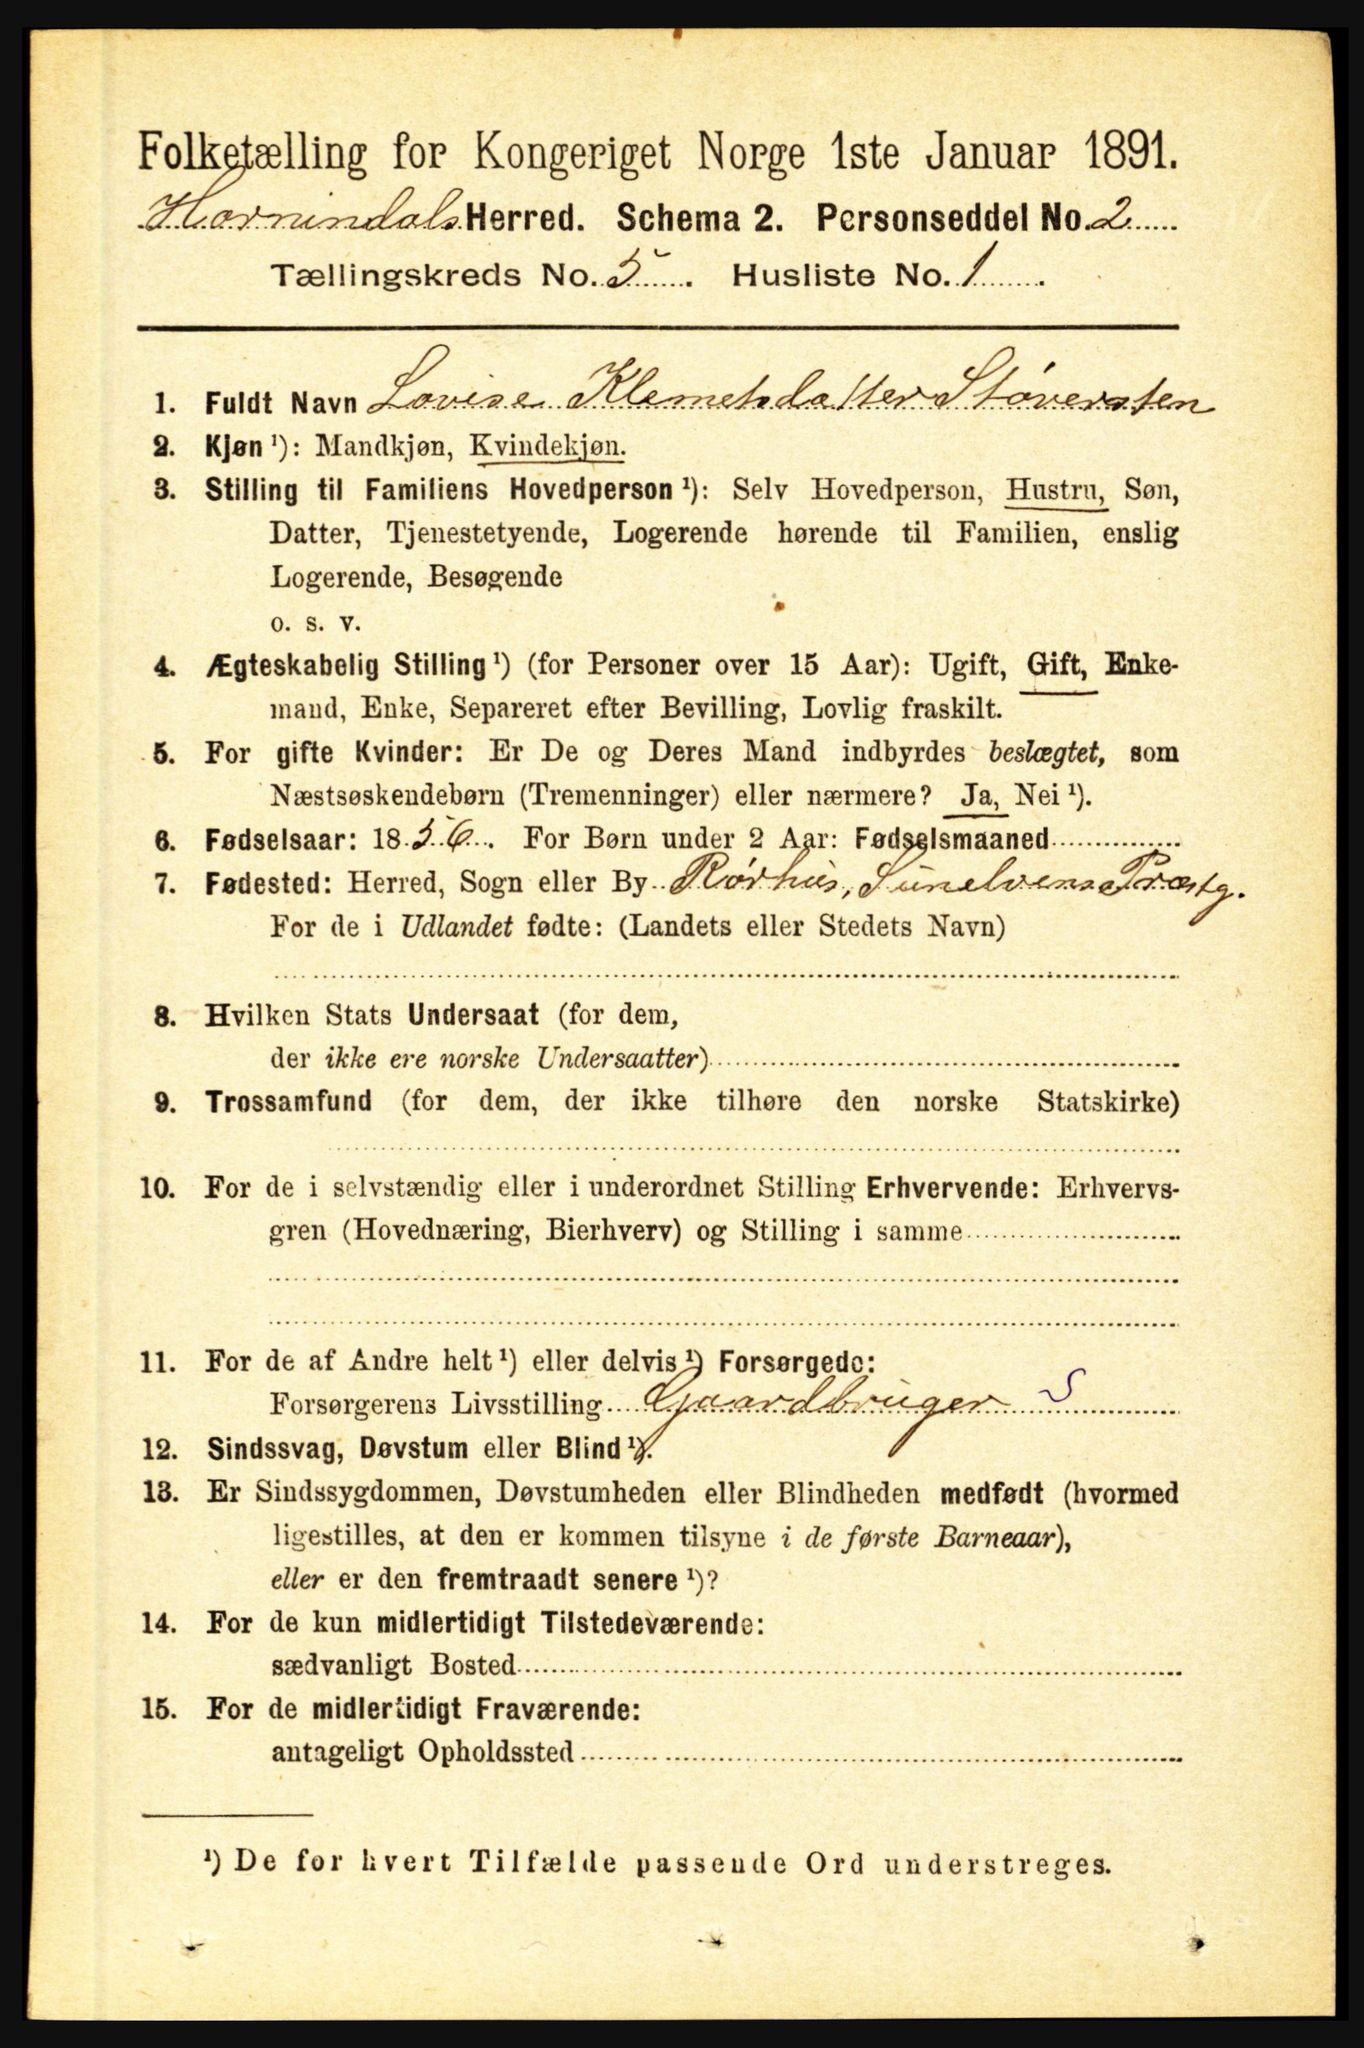 Folketælling for Kongeriget Norge 1ste Januar 1891.
Hornindals Herred. Schema 2. Personseddel No. 2
Tællingskreds No. 5. Husliste No. 1.
1. Fuldt Navn Lovise Klemetsdatter Støversten
2. Kjøn ¹): Mandkjøn, Kvindekjøn.
3. Stilling til Familiens Hovedperson ¹): Selv Hovedperson, Hustru, Søn,
Datter, Tjenestetyende, Logerende hørende til Familien, enslig
Logerende, Besøgende
o. s. v.
4. Ægteskabelig Stilling ¹) (for Personer over 15 Aar): Ugift, Gift, Enke-
mand, Enke, Separeret efter Bevilling, Lovlig fraskilt.
5. For gifte Kvinder: Er De og Deres Mand indbyrdes beslægtet, som
Næstsøskendebørn (Tremenninger) eller nærmere? Ja, Nei ¹).
6. Fødselsaar: 1856. For Børn under 2 Aar: Fødselsmaaned
7. Fødested: Herred, Sogn eller By Rørhus, Sunelvens Præstg.
For de i Udlandet fødte: (Landets eller Stedets Navn)
8. Hvilken Stats Undersaat (for dem,
der ikke ere norske Undersaatter)
9. Trossamfund (for dem, der ikke tilhøre den norske Statskirke)
10. For de i selvstændig eller i underordnet Stilling Erhvervende: Erhvervs-
gren (Hovednæring, Bierhverv) og Stilling i samme
11. For de af Andre helt ¹) eller delvis ¹) Forsørgede:
Forsørgerens Livsstilling Gaardbruger S
12. Sindssvag, Døvstum eller Blind ¹).
13. Er Sindssygdommen, Døvstumheden eller Blindheden medfødt (hvormed
ligestilles, at den er kommen tilsyne i de første Barneaar),
eller er den fremtraadt senere ¹)?
14. For de kun midlertidigt Tilstedeværende:
sædvanligt Bosted
15. For de midlertidigt Fraværende:
antageligt Opholdssted
¹) De for hvert Tilfælde passende Ord understreges.